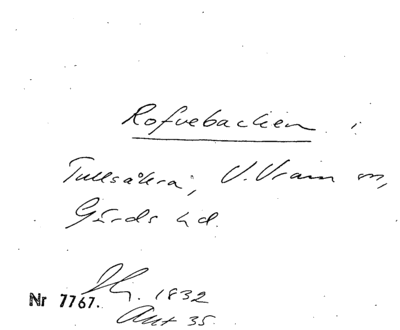 Rofvebacken i
Tullsåkra, V. Vram sn,
Gärds hd.
Nr 7767. 1832
Akt 35